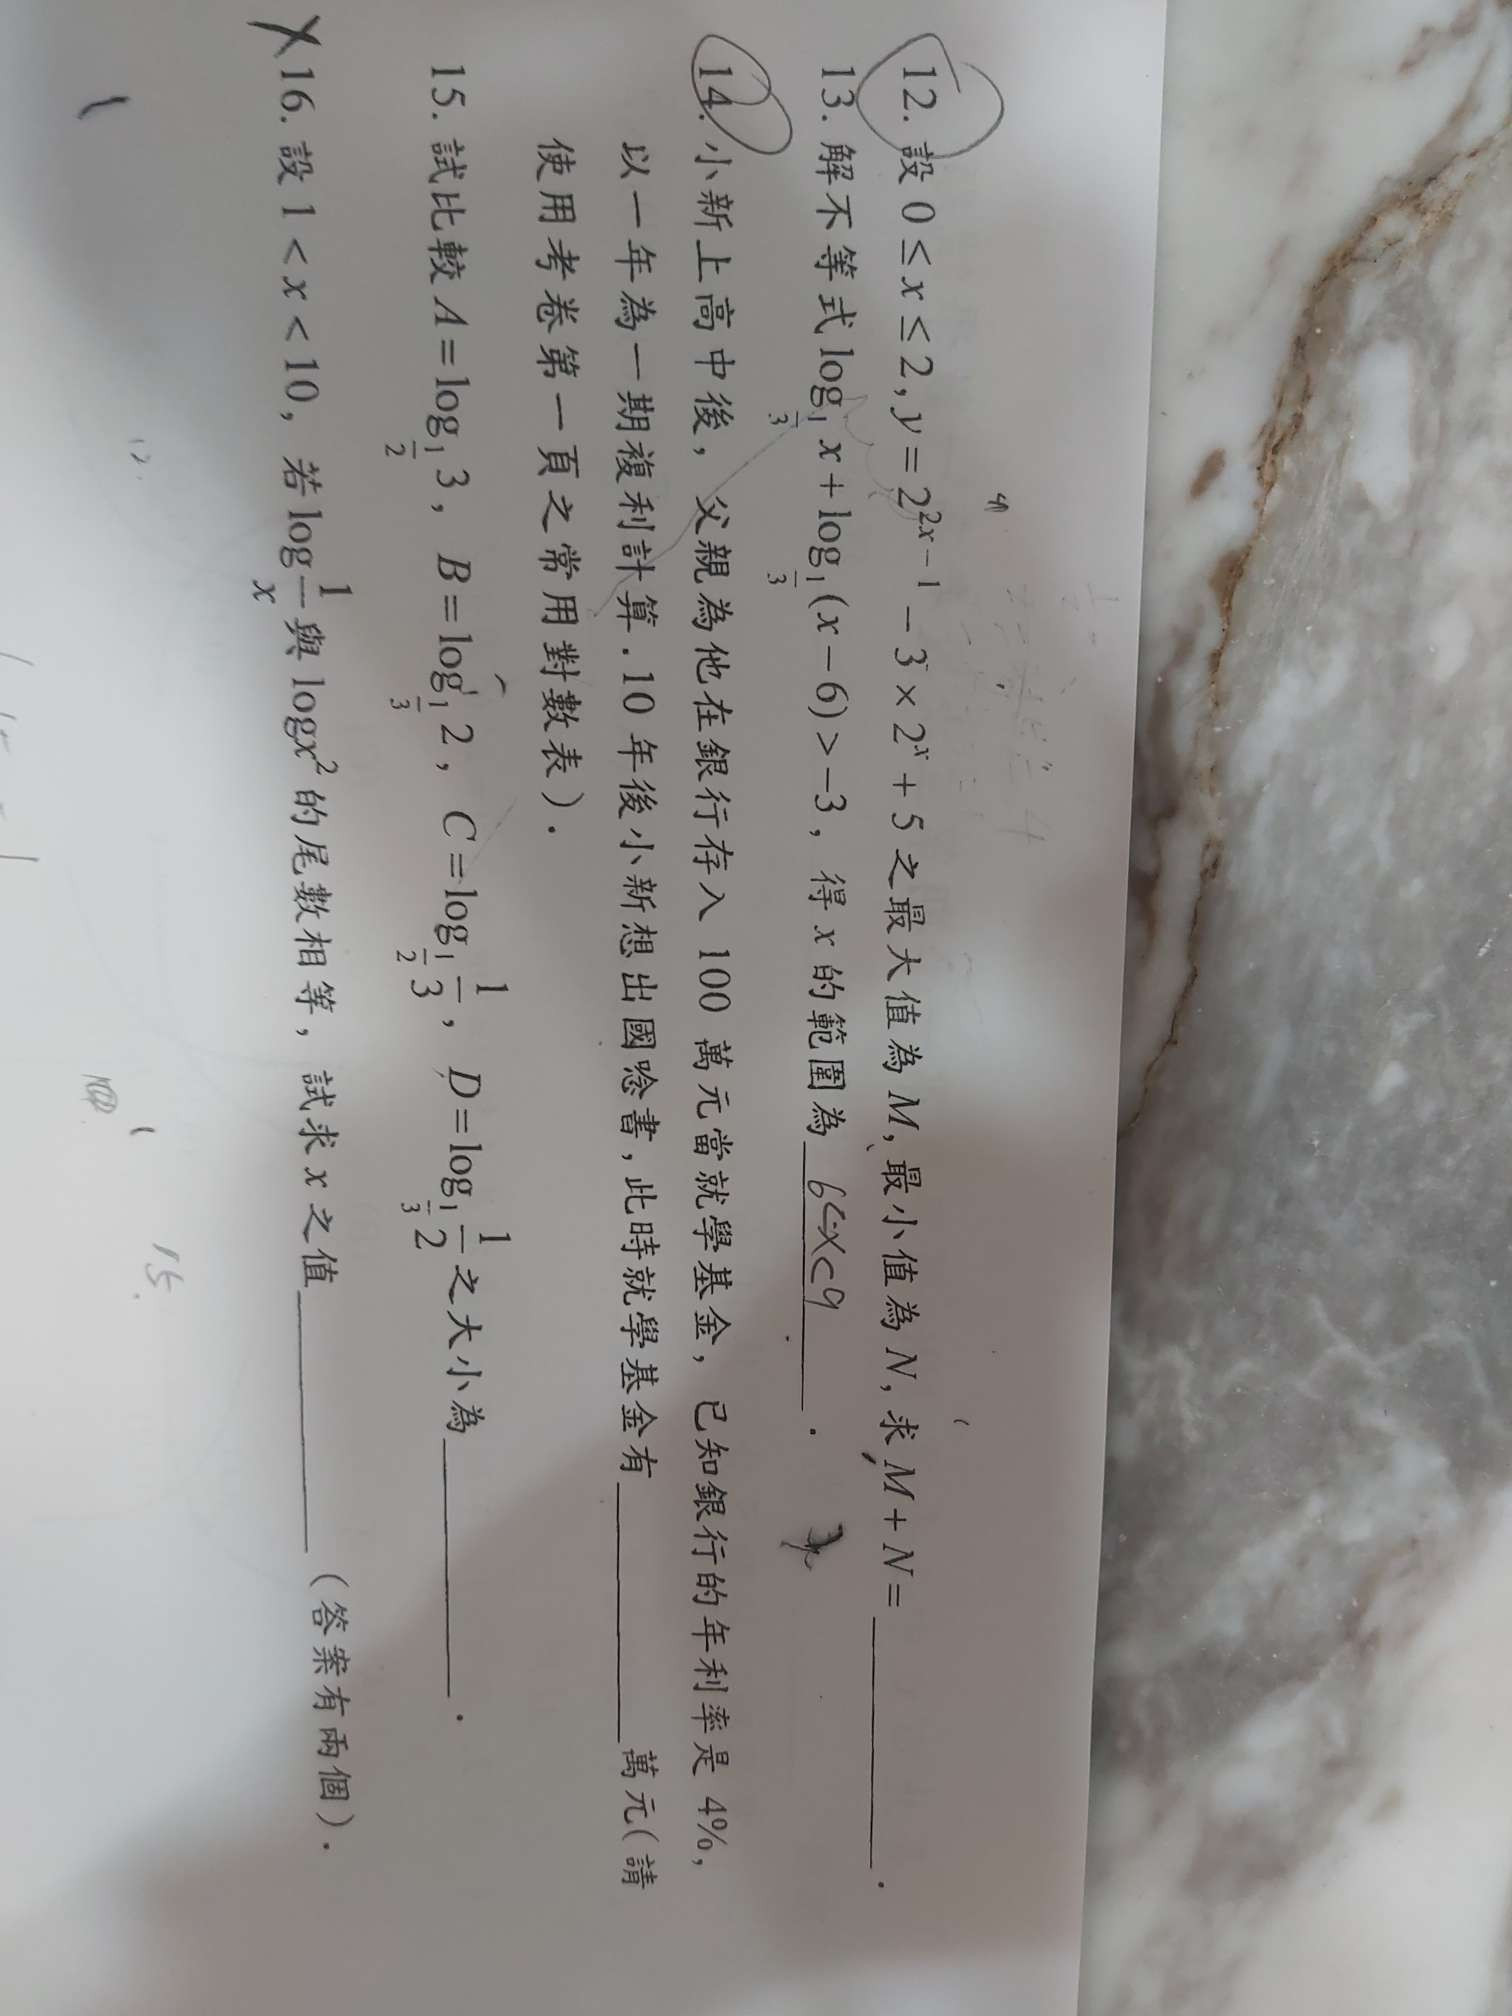 12. 設 0 ≤ x ≤ 2, y = 2^{2x-1} - 3 × 2^x + 5 之最大值為 M, 最小值為 N, 求 M + N = ________.
13. 解不等式 log_{1/3} x + log_{1/3} (x - 6) > -3, 得 x 的範圍為 6<x<9.
14. 小新上高中後, 父親為他在銀行存入 100 萬元當就學基金, 已知銀行的年利率是 4%,
以一年為一期複利計算. 10 年後小新想出國唸書, 此時就學基金有 ________ 萬元(請
使用考卷第一頁之常用對數表).
15. 試比較 A = log_{1/2} 3, B = log_{1/3} 2, C = log_{1/2} 1/3, D = log_{1/3} 1/2 之大小為 ________.
16. 設 1 < x < 10, 若 log 1/x 與 log x² 的尾數相等, 試求 x 之值 ________ (答案有兩個).
12.
15.